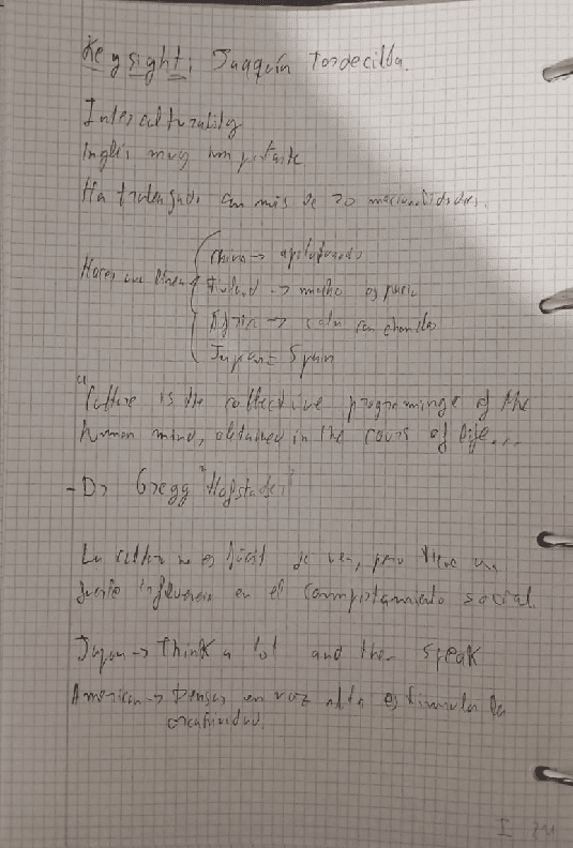 Keysight: Joaquín Tordecilla.
Interculturality
Inglés muy importante
Ha trabajado con más de 20 nacionalidades.
Hacer una línea
China →
Finland → mucho espacio
→ cola con
Japan = Spain
"Culture is the collective programminge of the
human mind, obtained in the cours of life...
- Dr Gregg "Hofstader"
La cultura no es fácil de ver, pero tiene un
fuerte influencia en el comportamiento social
Japan → Think a lot and then speak
American → Pensar en voz alta estimula la
creatividad.